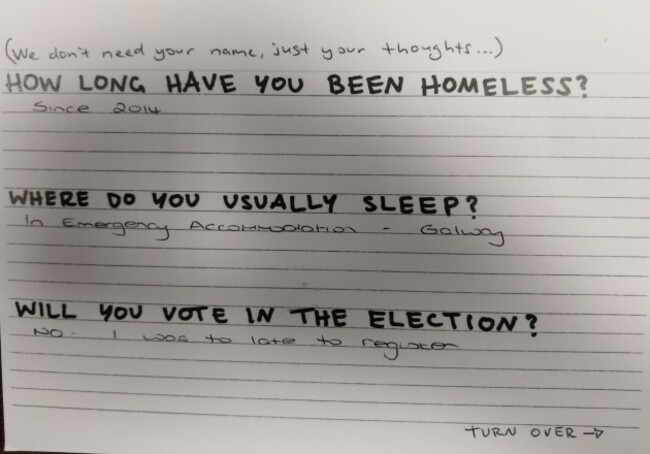 (We don't need your name, just your thoughts...)
HOW LONG HAVE YOU BEEN HOMELESS?
Since 2014
WHERE DO YOU USUALLY SLEEP?
In Emergency Accommodation - Galway
WILL YOU VOTE IN THE ELECTION?
No. I was to late to register
TURN OVER →